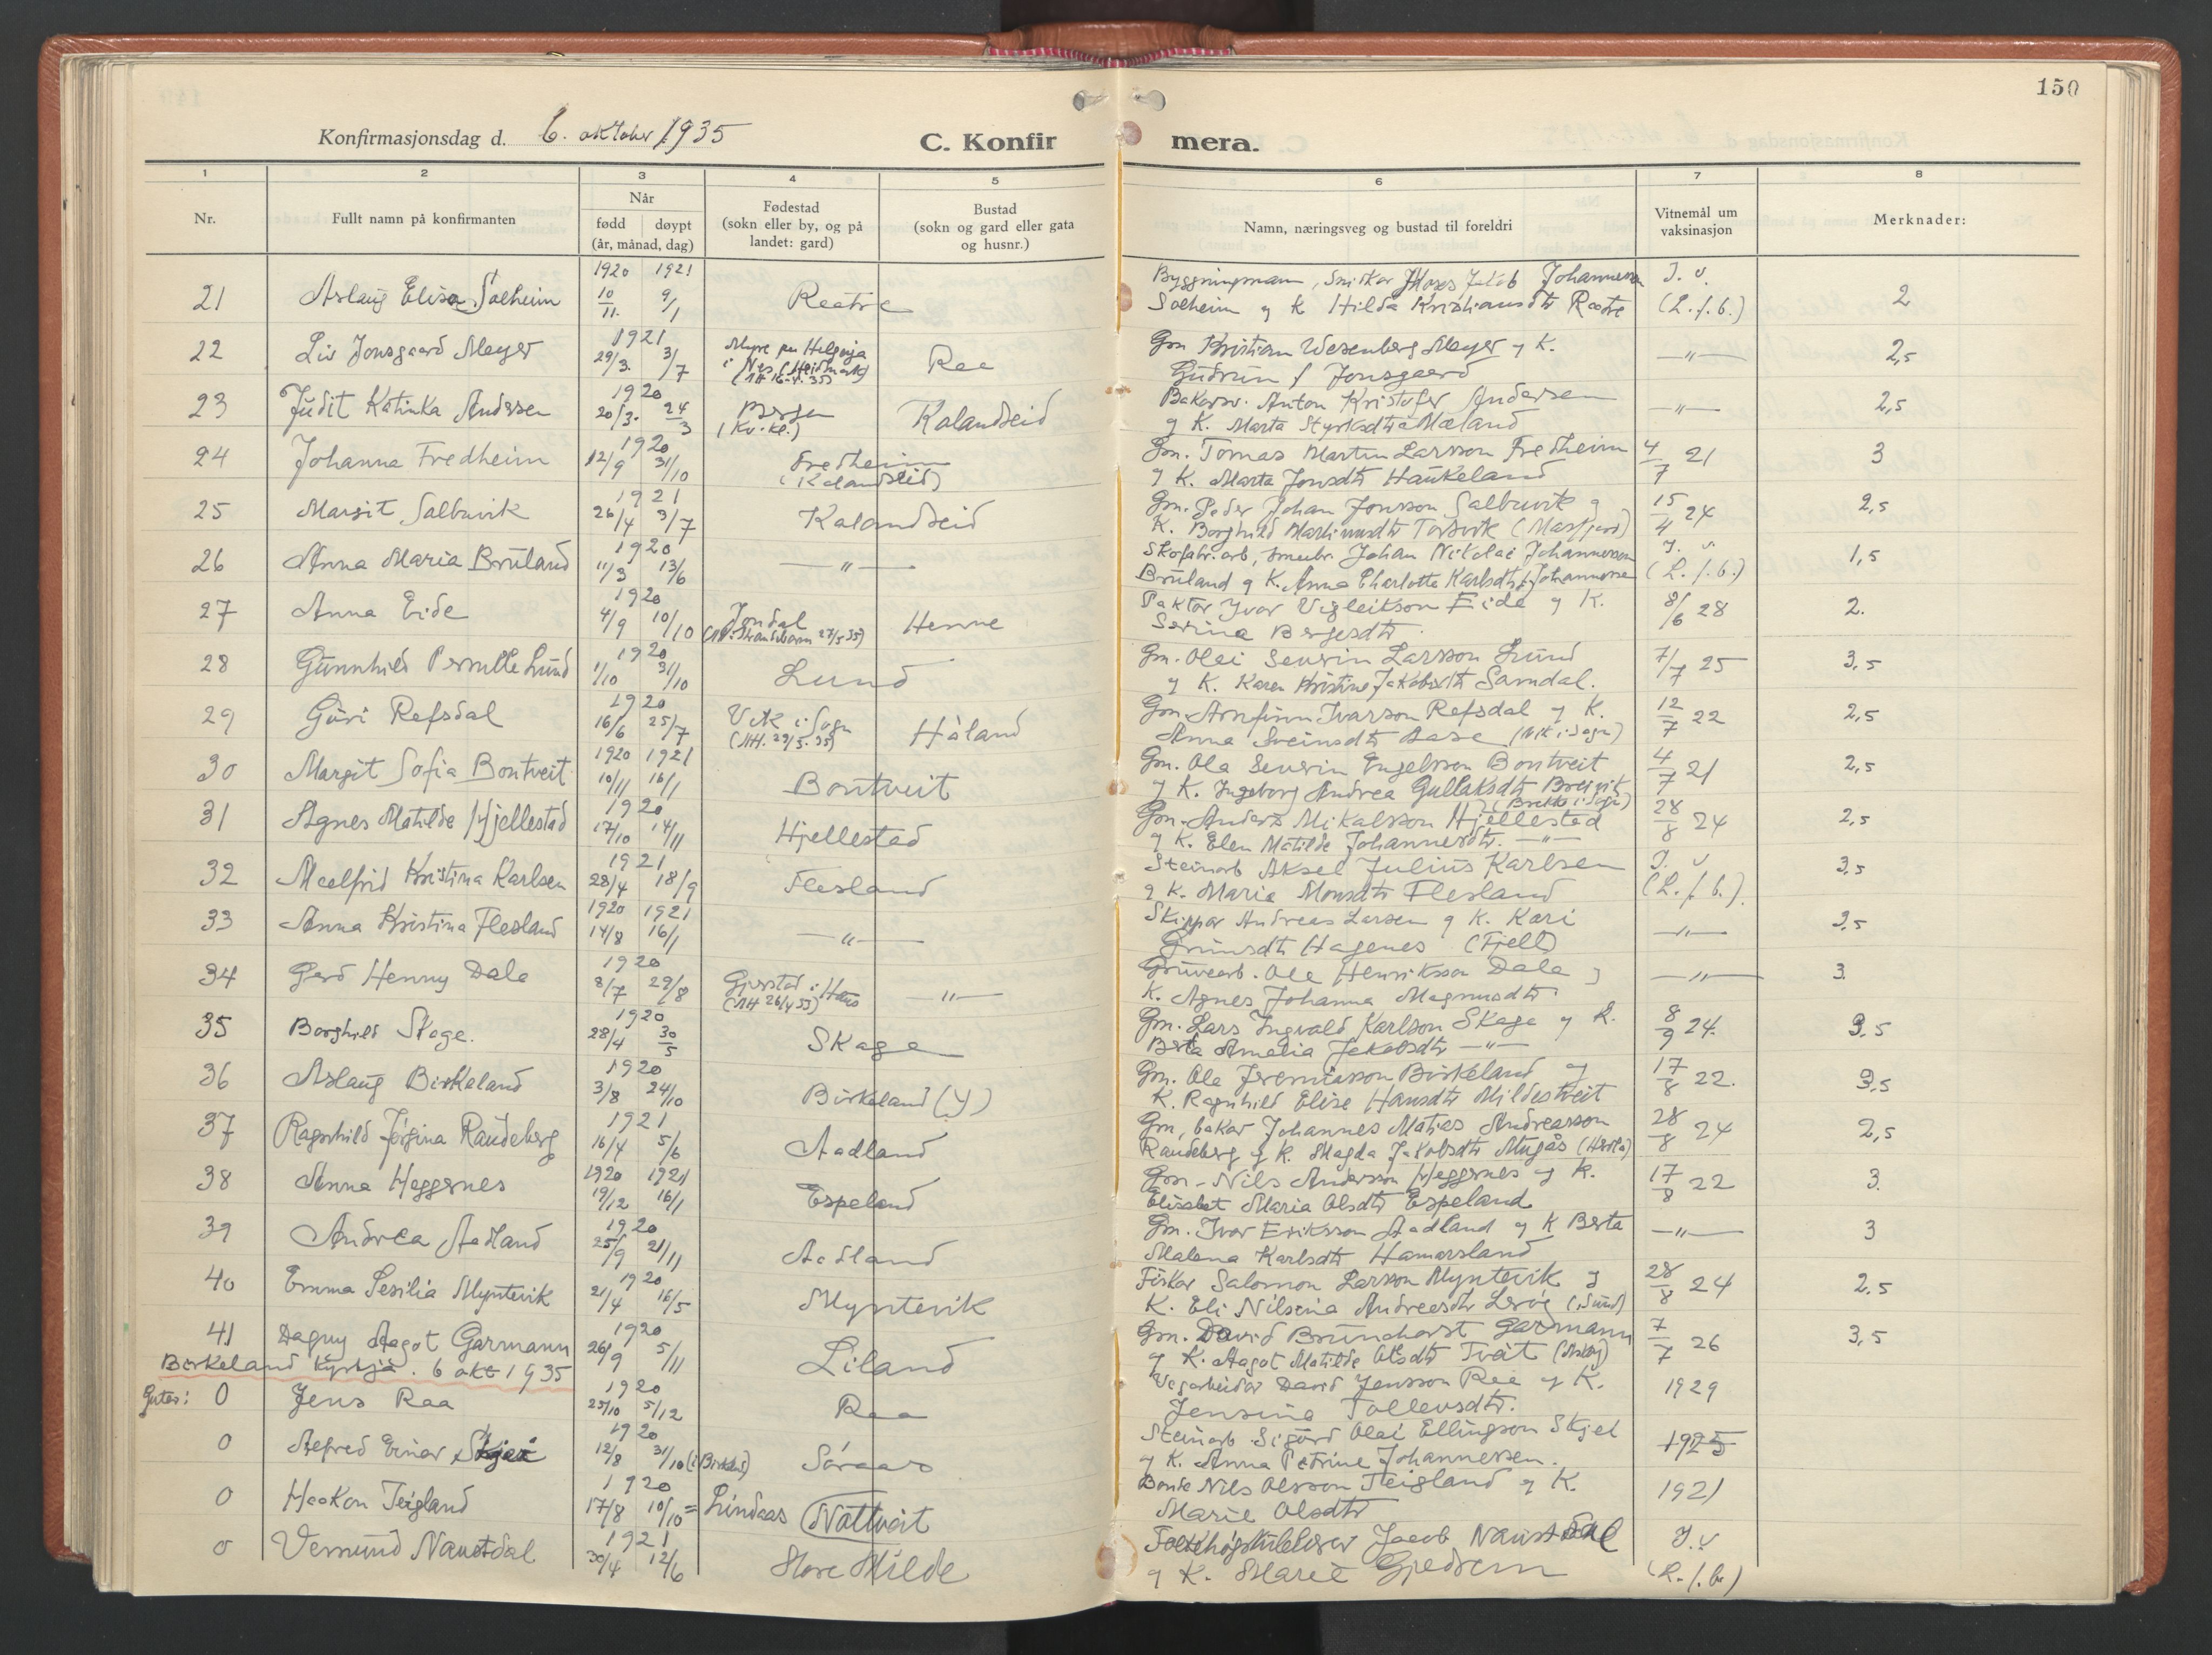 150
Konfirmasjonsdag d. 6. oktober 1935
C. Konfirmera.
1 2 3 4 5 6 7 8
Nr.
Fullt namn på konfirmanten
Når
fødd døypt
(år, månad, dag)
Fødestad
(sokn eller by, og på
landet: gard)
Bustad
(sokn og gard eller gata
og husnr.)
Namn, næringsveg og bustad til foreldri
Vitnemål um
vaksinasjon
Merknader:
1920 1921 Byggningsmann, Johannessen J. v.
21 Aslaug Elisa Solheim 10/11. 9/1 Solheim og K Hilda Kristiansdtr (L.f.b.) 2
1921 Gm Kristian Wesenberg Meyer og K.
22 Liv Jonsgaard Meyer 29/3. 3/7 i Nes (Heidmark) Raa Gudrun f Jonsgaard —"— 2,5
1920 Anton Kristofer Andersen
23 Judit Katinka Andersen 20/3. 24/3 Bergen (Kv.kl.) Kalandseid og K. Marta Mæland —"— 2,5
1920 Gm. Tomas Martin Larsson Fredheim
24 Johanna Fredheim 12/9 31/10 Fredheim (Kalandseid) og K. Marta Jonsdtr Haukeland 4/7 21 3
1921 Gm. Peder Johan Jonsson Salbuvik og
25 Margit Salbuvik 26/4 3/7 Kalandseid K. Borghild Martinusdtr (Masfjord) 15/4 24 2,5
1920 Johan Nikolai Johannessen J. v.
26 Anna Maria Bruland 11/3 13/6 —"— Bruland og K. Anna Charlotte Karlsdtr f. Johannessen (L.f.b.) 1,5
1920 Faktor Ivar Vigleikson Eide og K.
27 Anna Eide 4/9 10/10 Jondal Henne Serina Bergesdtr. 8/6 28 2.
1920 Gm. Olai Severin Larsson Lund
28 Gunnhild Pernille Lund 1/10 31/10 Lund og K. Karen Kristine Jakobsdtr Samdal. 7/7 25 3,5
1920 Gm. Arnfinn Ivarson Refsdal og K.
29 Guri Refsdal 16/6 25/7 Vik i Sogn (MH. 29/5.35) Håland Anna Sveinsdtr Aase (Vik i Sogn) 12/7 22 2,5
1920 1921 Gm. Ola Severin Engelsson Bontveit
30 Margit Sofia Bontveit 10/11 16/1 Bontveit og K. Ingeborg Andrea Gullaksdtr Breivik (Brekke i Sogn) 4/7 21 2,5
1920 Gm. Anders Mikalsson Hjellestad
31 Agnes Matilde Hjellestad 17/10 14/11 Hjellestad og K. Elen Matilde Johannesdtr. —"— 28/8 24 2,5
1921 Steinarb Aksel Julius Karlsen J. v
32 Maalfrid Kristina Karlsen 28/4 18/9 Flesland og K. Maria Monsdtr Flesland (L.f.b.). 3,5
1920 1921 Skipper Andreas Larsen og K. Kari
33 Anna Kristina Flesland 14/8 16/1 —"— Hagenes (Fjell) —"— 3,5
1920 Gruvearb. Ole Henriksson Dale og
34 Gerd Henny Dale 8/7 29/8 Gjerstad i Haus —"— K. Agnes Johanna Magnusdtr. —"— 3.
1920 Gm. Lars Ingvald Karlson Skage og K.
35 Borghild Skage. 28/4 30/5 Skage Berta Amalia Jakobsdtr —"— 8/9 24. 3,5
1920 Gm. Ole Jeremiasson Birkeland og
36 Aslaug Birkeland 3/8 24/10 Birkeland (Y) K. Ragnhild Elise Hansdtr Mildestveit 17/8 22. 3,5
1921 Gm, bakar Johannes Matias Andreasson
37 Ragnhild Jørgina Raudeberg 16/4 5/6 Aadland Raudeberg og K. Magda Jakobsdtr Mugås (Herdla) 28/8 24 2,5
1920 1921 Gm. Nils Andersson Heggernes og K.
38 Anna Heggernes 19/12 16/1 Espeland Elisabet Maria Olsdtr Espeland 17/8 22 3.
1920 Gm. Ivar Eriksson Aadland og K Berta
39 Andrea Aadland 25/9 21/11 Aadland Malena Karlsdtr Hamarsland —"— 3
1920 Fiskar Salomon Larsson Myntevik og
40 Emma Sesilia Myntevik 21/4 16/5 Myntevik K. Eli Nilsina Andreasdtr Lerøe (Sund) 28/8 24 2,5
1920 Gm. David Brunchorst Garmann
41 Dagny Aagot Garmann 26/9 5/11 Liland og K. Aagot Matilde Olsdtr Tveit (Askøy) 7/7 26 3,5
Birkeland Kyrkja. 6 okt 1935
1920 Vegarbeidar David Jensson Raa og K.
Gutar: 0 Jens Raa 25/10 5/12 Raa Jensina Tollevsdtr. 1929
1920 Steinarb Sigurd Olai Ellingson Skjel
0 Alfred Einar 12/8 31/10 (i Birkel) Søraas og K. Anna Petrine Johannessen. 1925
1920 Bonde Nils Olsson Teigland og K.
0 Haakon Teigland 17/8 10/10 = Lindaas Nattveit Marie Olsdtr 1921
1921 Jacob Naustdal J.v
0 Vemund Naustdal 30/4 12/6 Store Milde og K. Marie Gjedrem (L.f.b.)